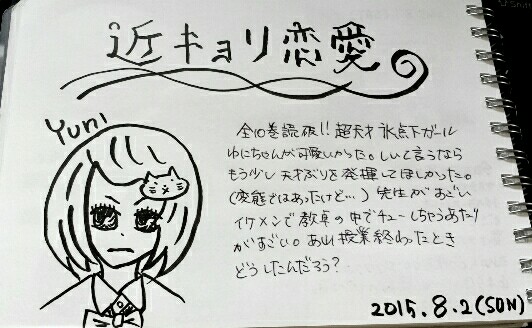 近キョリ恋愛
Yuni
全10巻読破!! 超天才氷点下ガール
ゆにちゃんが可愛いかった。しいて言うなら
もう少し天才ぶりを発揮してほしかった。
(変態ではあったけど…) 先生がすごい
イケメンで教卓の中でチューしちゃうあたり
がすごい。あれ授業終わったとき
どうしたんだろう?
2015.8.2(SUN)